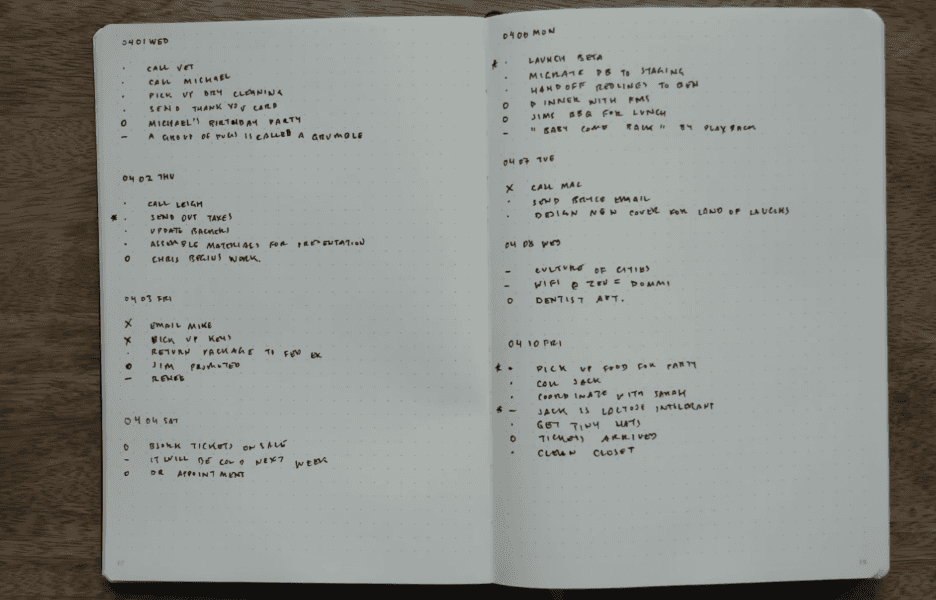 04 01 WED
· CALL VET
· CALL MICHAEL
· PICK UP DRY CLEANING
· SEND THANK YOU CARD
O MICHAEL'S BIRTHDAY PARTY
– A GROUP OF PUGS IS CALLED A GRUMBLE
04 02 THU
· CALL LEIGH
* · SEND OUT TAXES
· UPDATE BACKERS
· ASSEMBLE MATERIALS FOR PRESENTATION
O CHRIS BEGINS WORK.
04 03 FRI
X EMAIL MIKE
X PICK UP KEYS
· RETURN PACKAGE TO FED EX
O JIM PROMOTED
– RENEE
04 04 SAT
O BJORK TICKETS ON SALE
– IT WILL BE COLD NEXT WEEK
O DR APPOINTMENT
17
04 06 MON
* · LAUNCH BETA
· MIGRATE DB TO STAGING
· HANDOFF REDLINES TO BEN
O DINNER WITH FMS
O JIMS BBQ FOR LUNCH
– "BABY COME BACK" BY PLAYBACK
04 07 TUE
X CALL MAC
· SEND BRYCE EMAIL
· DESIGN NEW COVER FOR LAND OF LAUGHS
04 08 WED
– CULTURE OF CITIES
– WIFI @ ZEN = DOMMI
O DENTIST APT.
04 10 FRI
* · PICK UP FOOD FOR PARTY
· CALL JACK
· COORDINATE WITH SARAH
* – JACK IS LACTOSE INTOLERANT
· GET TINY HATS
O TICKETS ARRIVED
· CLEAN CLOSET
18